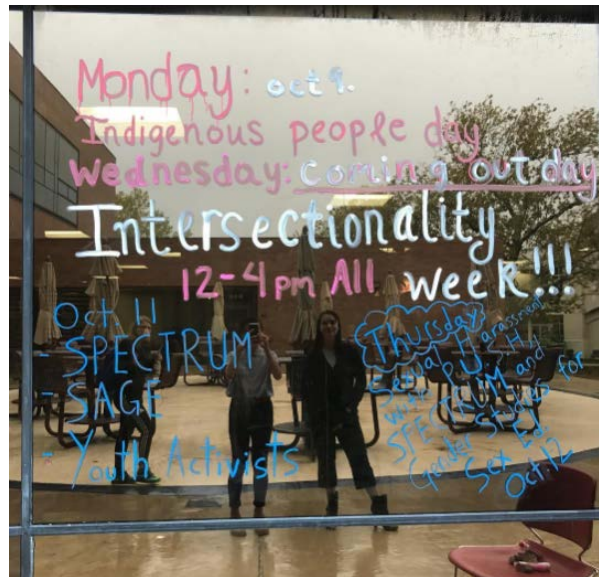 Monday: oct 9.
Indigenous people day
Wednesday: coming out day
Intersectionality
12-4pm All week!!!
Oct 11
- SPECTRUM
- SAGE
- Youth Activists
Thursday
Sexual Harassment
SPECTRUM and
Gender Studies for
Sex Ed
Oct 12